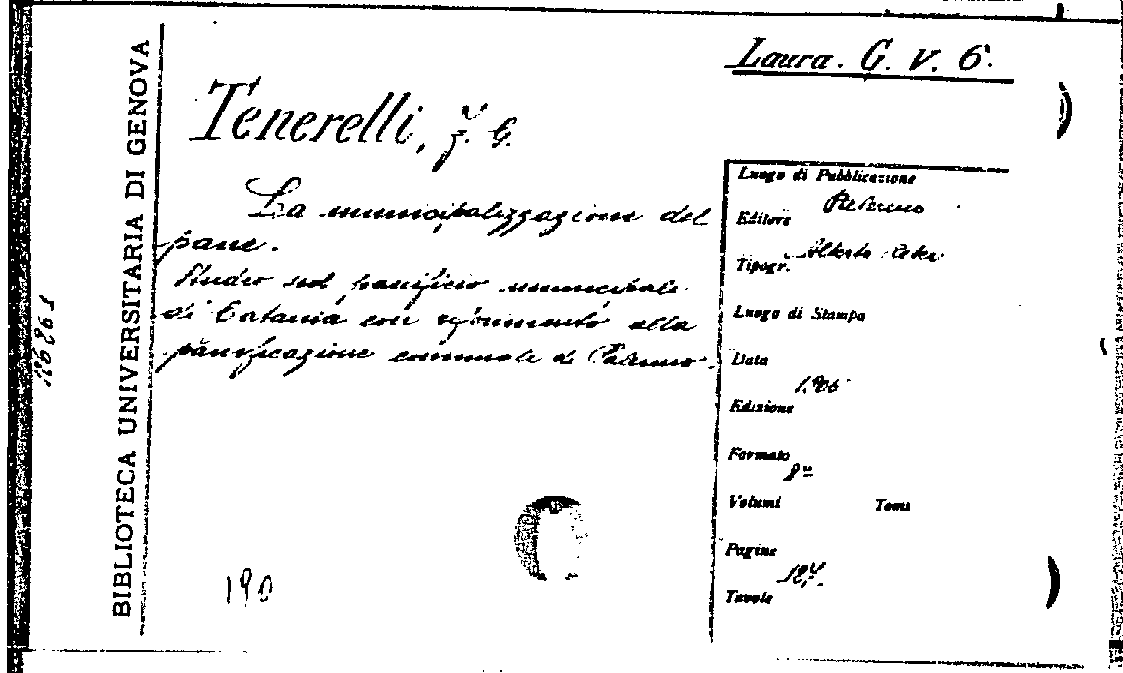 Laura. G. V. 6.
BIBLIOTECA UNIVERSITARIA DI GENOVA
Tenerelli, F. G.
La municipalizzazione del
pane.
Studio sul panificio municipale
di Catania con riferimento alla
panificazione comunale di Palermo.
190
Luogo di Pubblicazione
Palermo
Editore
Alberto Reber
Tipogr.
Luogo di Stampa
Data
1906
Edizione
Formato
8º
Volumi Tomi
Pagine
Tavole